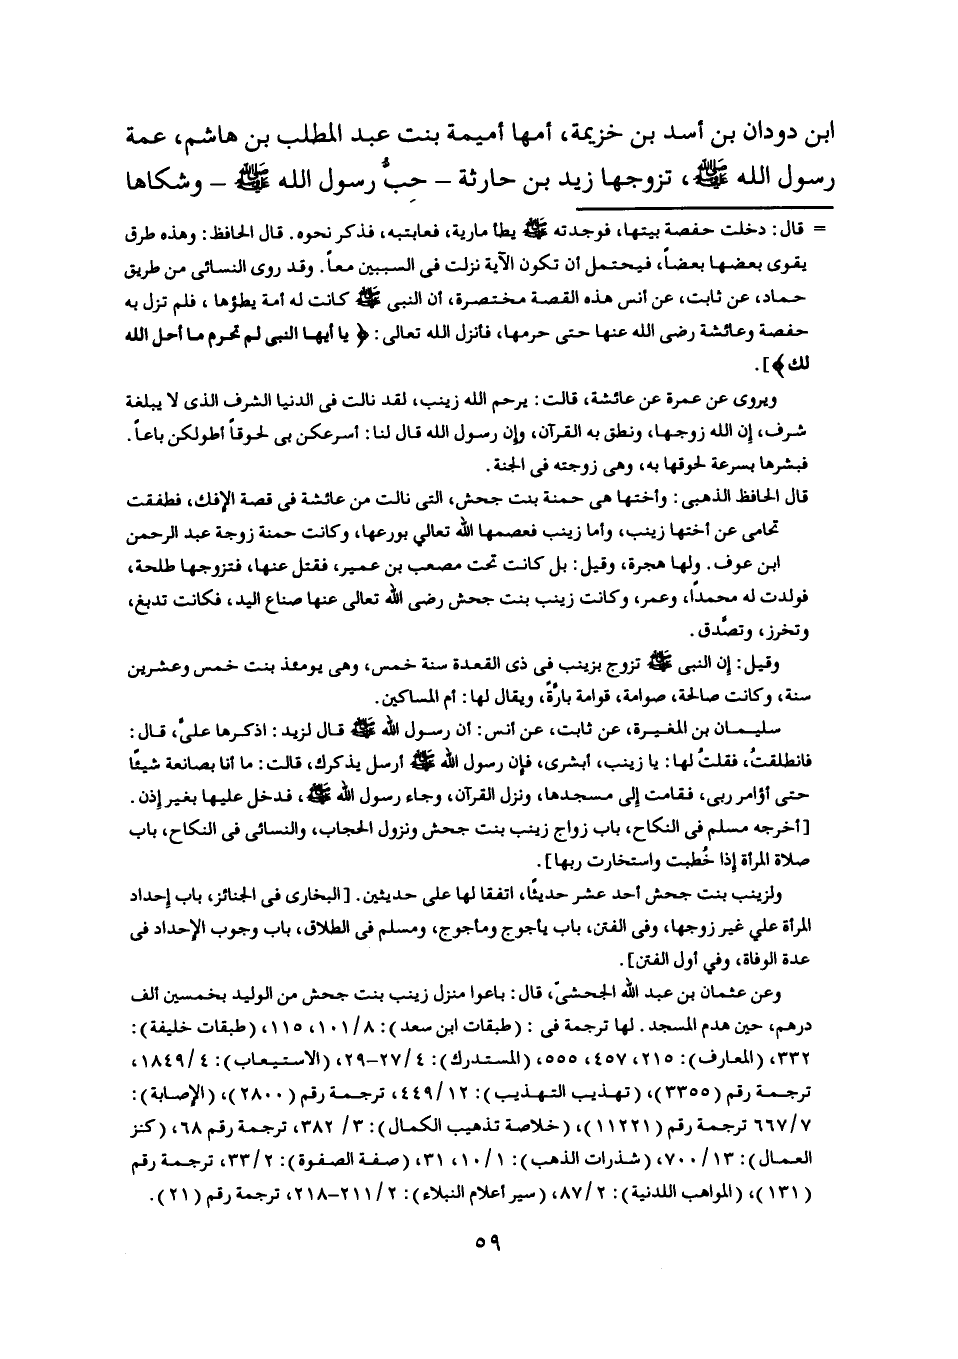 ابن دودان بن أسد بن خزيمة، أمها أميمة بنت عبد المطلب بن هاشم، عمة
رسول الله ﷺ، تزوجها زيد بن حارثة – حِبُّ رسول الله ﷺ – وشكاها
= قال: دخلت حفصة بيتها، فوجدته ﷺ يطأ مارية، فعاتبته، فذكر نحوه. قال الحافظ: وهذه طرق
يقوى بعضها بعضاً، فيحتمل أن تكون الآية نزلت فى السببين معاً. وقد روى النسائى من طريق
حماد، عن ثابت، عن أنس هذه القصة مختصرة، أن النبى ﷺ كانت له أمة يطؤها، فلم تزل به
حفصة وعائشة رضى الله عنها حتى حرمها، فأنزل الله تعالى: ﴿ يا أيها النبى لم تحرم ما أحل الله
لك ﴾].
ويروى عن عمرة عن عائشة، قالت: يرحم الله زينب، لقد نالت فى الدنيا الشرف الذى لا يبلغة
شرف، إن الله زوجها، ونطق به القرآن، وإن رسول الله قال لنا: أسرعكن بى لحوقاً أطولكن باعاً.
فبشرها بسرعة لحوقها به، وهى زوجته فى الجنة.
قال الحافظ الذهبى: وأختها هى حمنة بنت جحش، التى نالت من عائشة فى قصة الإفك، فطفقت
تحامى عن أختها زينب، وأما زينب فعصمها الله تعالي بورعها، وكانت حمنة زوجة عبد الرحمن
ابن عوف. ولها هجرة، وقيل: بل كانت تحت مصعب بن عمير، فقتل عنها، فتزوجها طلحة،
فولدت له محمداً، وعمر، وكانت زينب بنت جحش رضى الله تعالى عنها صناع اليد، فكانت تدبغ،
وتخرز، وتصَّدق.
وقيل: إن النبى ﷺ تزوج بزينب فى ذى القعدة سنة خمس، وهى يومئذ بنت خمس وعشرين
سنة، وكانت صالحة، صوامة، قوامة بارَّةً، ويقال لها: أم المساكين.
سليمان بن المغيرة، عن ثابت، عن أنس: أن رسول الله ﷺ قال لزيد: اذكرها علىَّ، قال:
فانطلقتُ، فقلتُ لها: يا زينب، أبشرى، فإن رسول الله ﷺ أرسل يذكرك، قالت: ما أنا بصانعة شيئًا
حتى أؤامر ربى، فقامت إلى مسجدها، ونزل القرآن، وجاء رسول الله ﷺ، فدخل عليها بغير إذن.
[أخرجه مسلم فى النكاح، باب زواج زينب بنت جحش ونزول الحجاب، والنسائى فى النكاح، باب
صلاة المرأة إذا خُطبت واستخارت ربها].
ولزينب بنت جحش أحد عشر حديثًا، اتفقا لها على حديثين. [البخارى فى الجنائز، باب إحداد
المرأة علي غير زوجها، وفى الفتن، باب يأجوج ومأجوج، ومسلم فى الطلاق، باب وجوب الإحداد فى
عدة الوفاة، وفي أول الفتن].
وعن عثمان بن عبد الله الجحشىّ، قال: باعوا منزل زينب بنت جحش من الوليد بخمسين ألف
درهم، حين هدم المسجد. لها ترجمة فى : (طبقات ابن سعد): ١٠١/٨، ١١٥، (طبقات خليفة):
٣٣٢، (المعارف): ٢١٥، ٤٥٧، ٥٥٥، (المستدرك): ٤ /٢٧–٢٩، (الاستيعاب): ٤ /١٨٤٩،
ترجمة رقم (٣٣٥٥)، (تهذيب التهذيب): ١٢ /٤٤٩، ترجمة رقم (٢٨٠٠)، (الإصابة):
٦٦٧/٧ ترجمة رقم (١١٢٢١)، (خلاصة تذهيب الكمال): ٣/ ٣٨٢، ترجمة رقم ٦٨، (كنز
العمال): ١٣ /٧٠٠، (شذرات الذهب): ١ /١٠، ٣١، (صفة الصفوة): ٢ /٣٣، ترجمة رقم
(١٣١)، (المواهب اللدنية): ٢ /٨٧، (سير أعلام النبلاء): ٢ /٢١١–٢١٨، ترجمة رقم (٢١).
٥٩